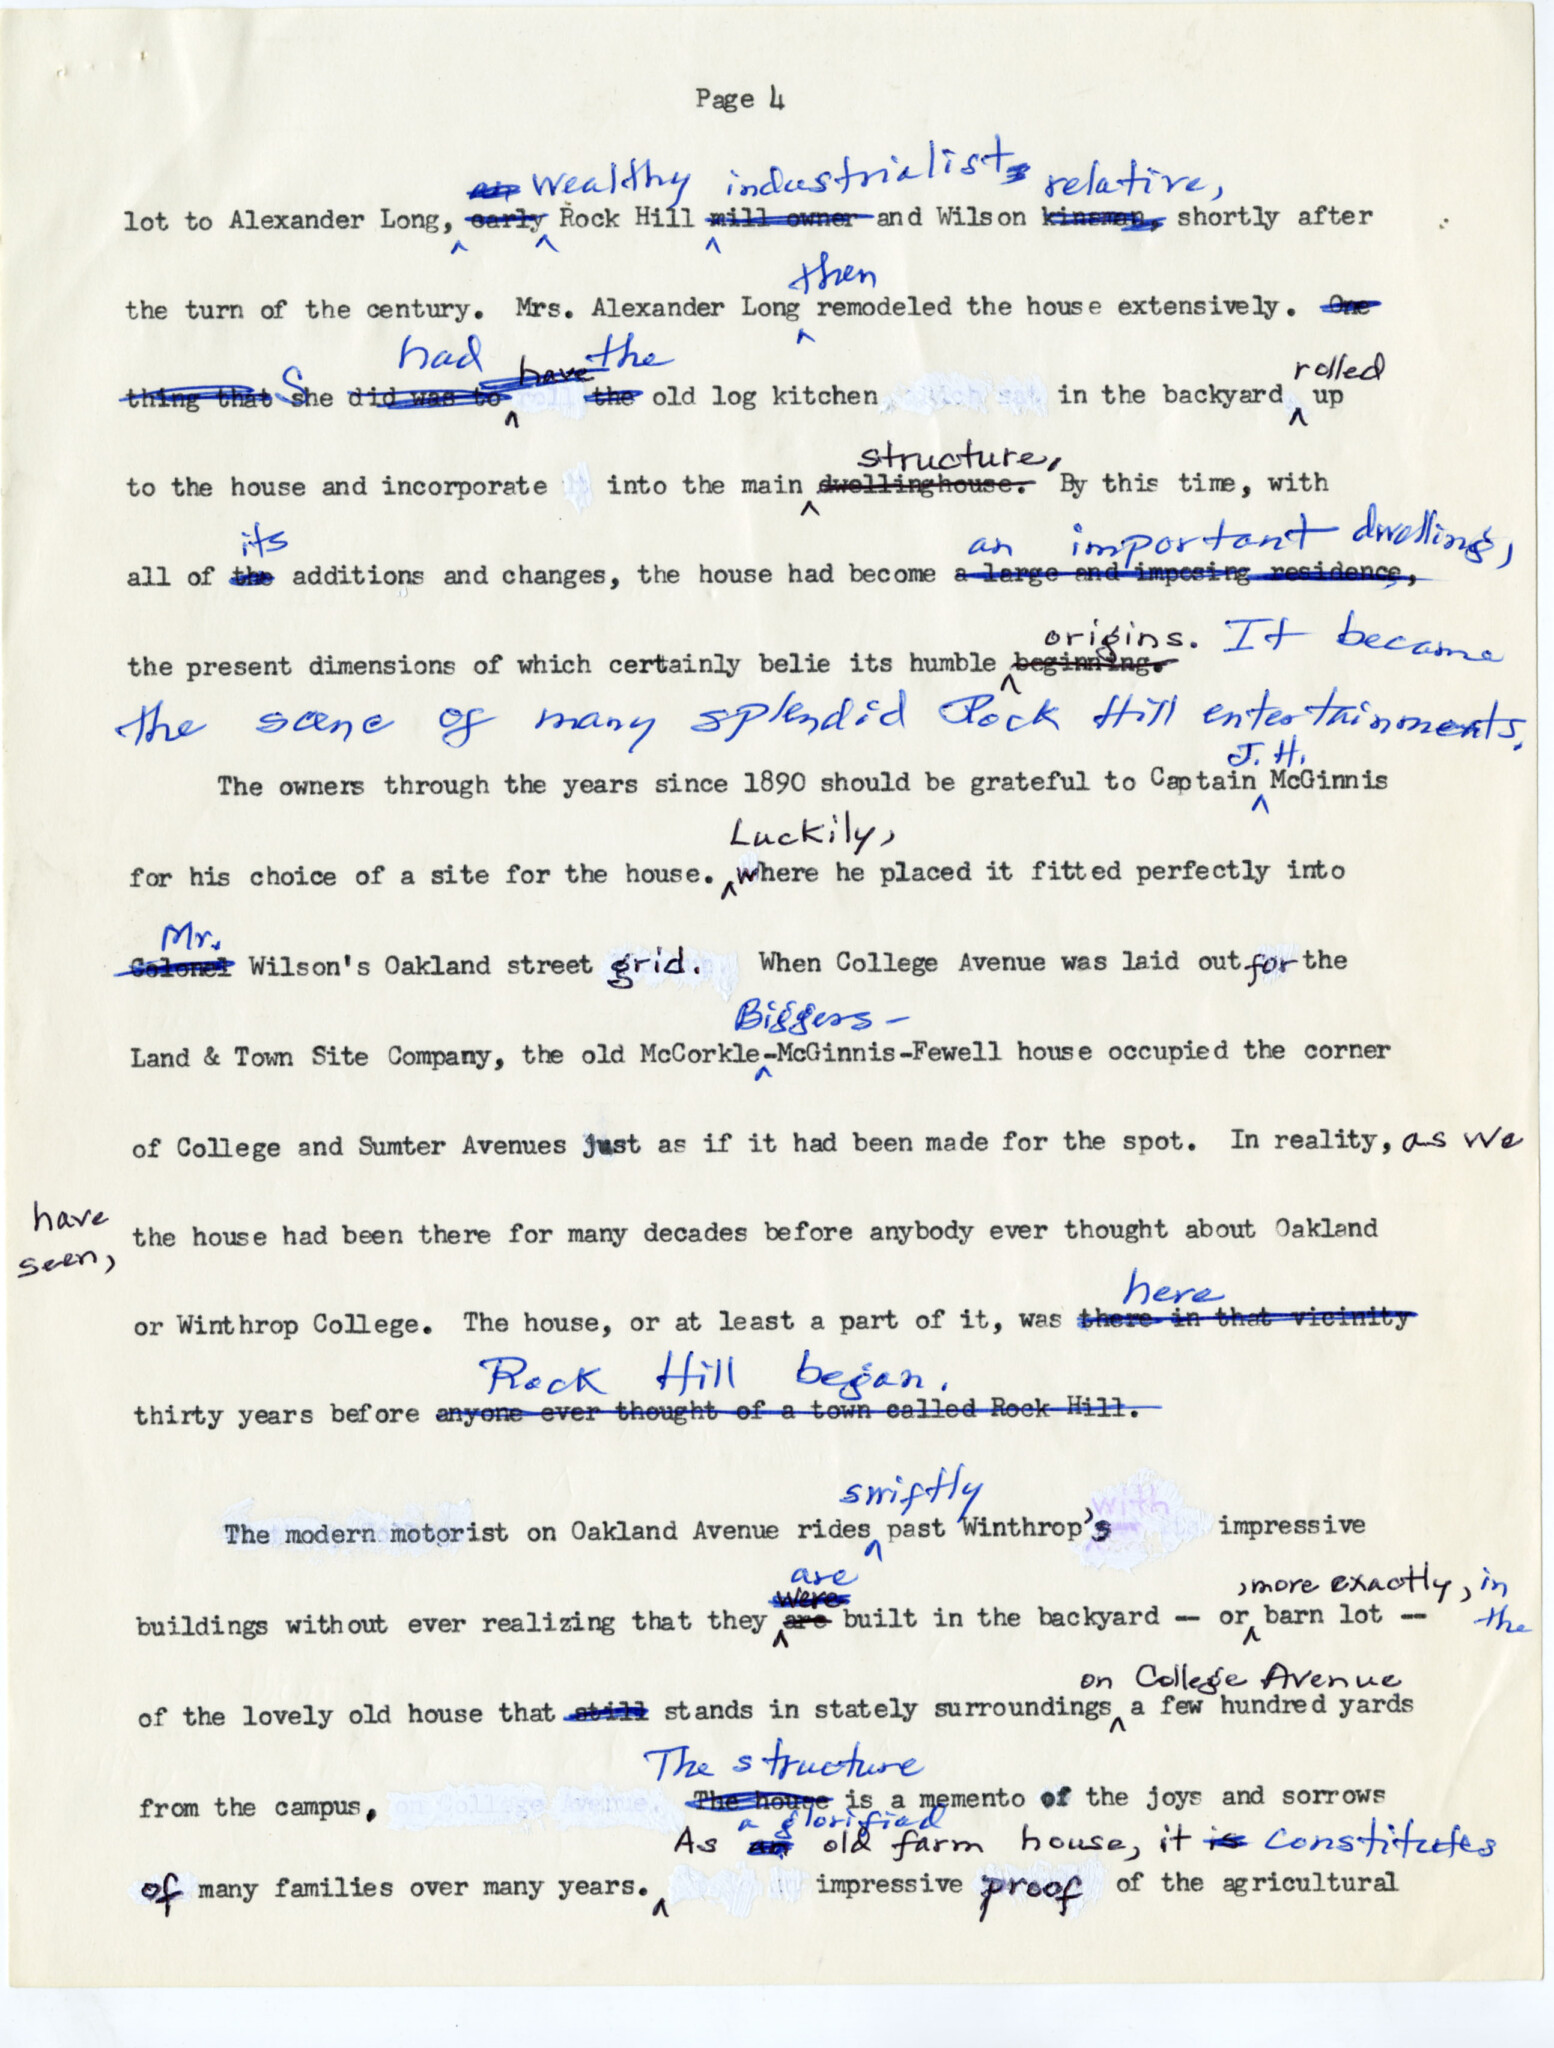 Page 4
an wealthy industrialist relative,
lot to Alexander Long, early Rock Hill mill owner and Wilson kinsman, shortly after
then
the turn of the century. Mrs. Alexander Long remodeled the house extensively. One
had have the rolled
thing that She did was to roll the old log kitchen which sat in the backyard up
structure,
to the house and incorporate it into the main dwellinghouse. By this time, with
its an important dwelling,
all of the additions and changes, the house had become a large and imposing residence,
origins. It became
the present dimensions of which certainly belie its humble beginning.
the scene of many splendid Rock Hill entertainments.
J. H.
The owners through the years since 1890 should be grateful to Captain McGinnis
Luckily,
for his choice of a site for the house. where he placed it fitted perfectly into
Mr.
Colonel Wilson's Oakland street grid. When College Avenue was laid out for the
Biggers-
Land & Town Site Company, the old McCorkle-McGinnis-Fewell house occupied the corner
of College and Sumter Avenues just as if it had been made for the spot. In reality, as we
have
seen,
the house had been there for many decades before anybody ever thought about Oakland
here
or Winthrop College. The house, or at least a part of it, was there in that vicinity
Rock Hill began.
thirty years before anyone ever thought of a town called Rock Hill.
swiftly with
The modern motorist on Oakland Avenue rides past Winthrop's impressive
are
were , more exactly, in
buildings without ever realizing that they are built in the backyard -- or barn lot -- the
on College Avenue
of the lovely old house that still stands in stately surroundings a few hundred yards
The structure
from the campus, on College Avenue. The house is a memento of the joys and sorrows
a glorified
As an old farm house, it is constitutes
of many families over many years. impressive proof of the agricultural